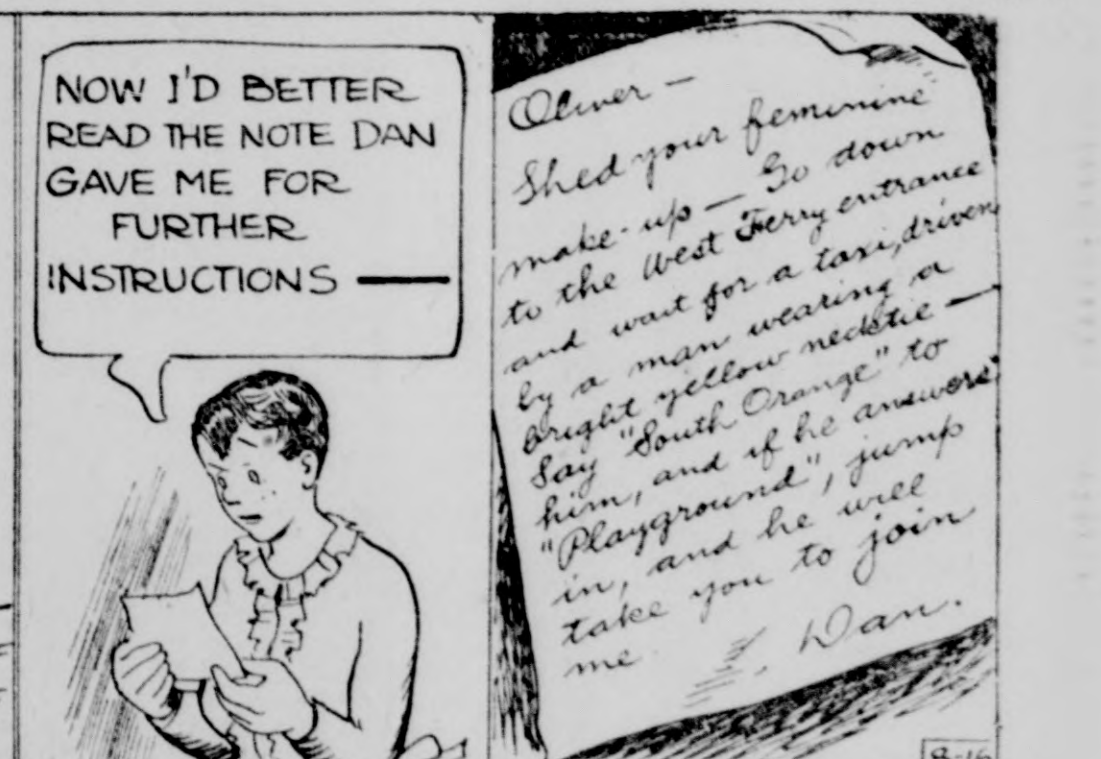 NOW I'D BETTER
READ THE NOTE DAN
GAVE ME FOR
FURTHER
INSTRUCTIONS ——
Oliver —
Shed your feminine
make-up — Go down
to the West Ferry entrance
and wait for a taxi, driven
by a man wearing a
bright yellow necktie —
Say "South Orange" to
him, and if he answers
"Playground", jump
in, and he will
take you to join
me.
Dan.
8-16